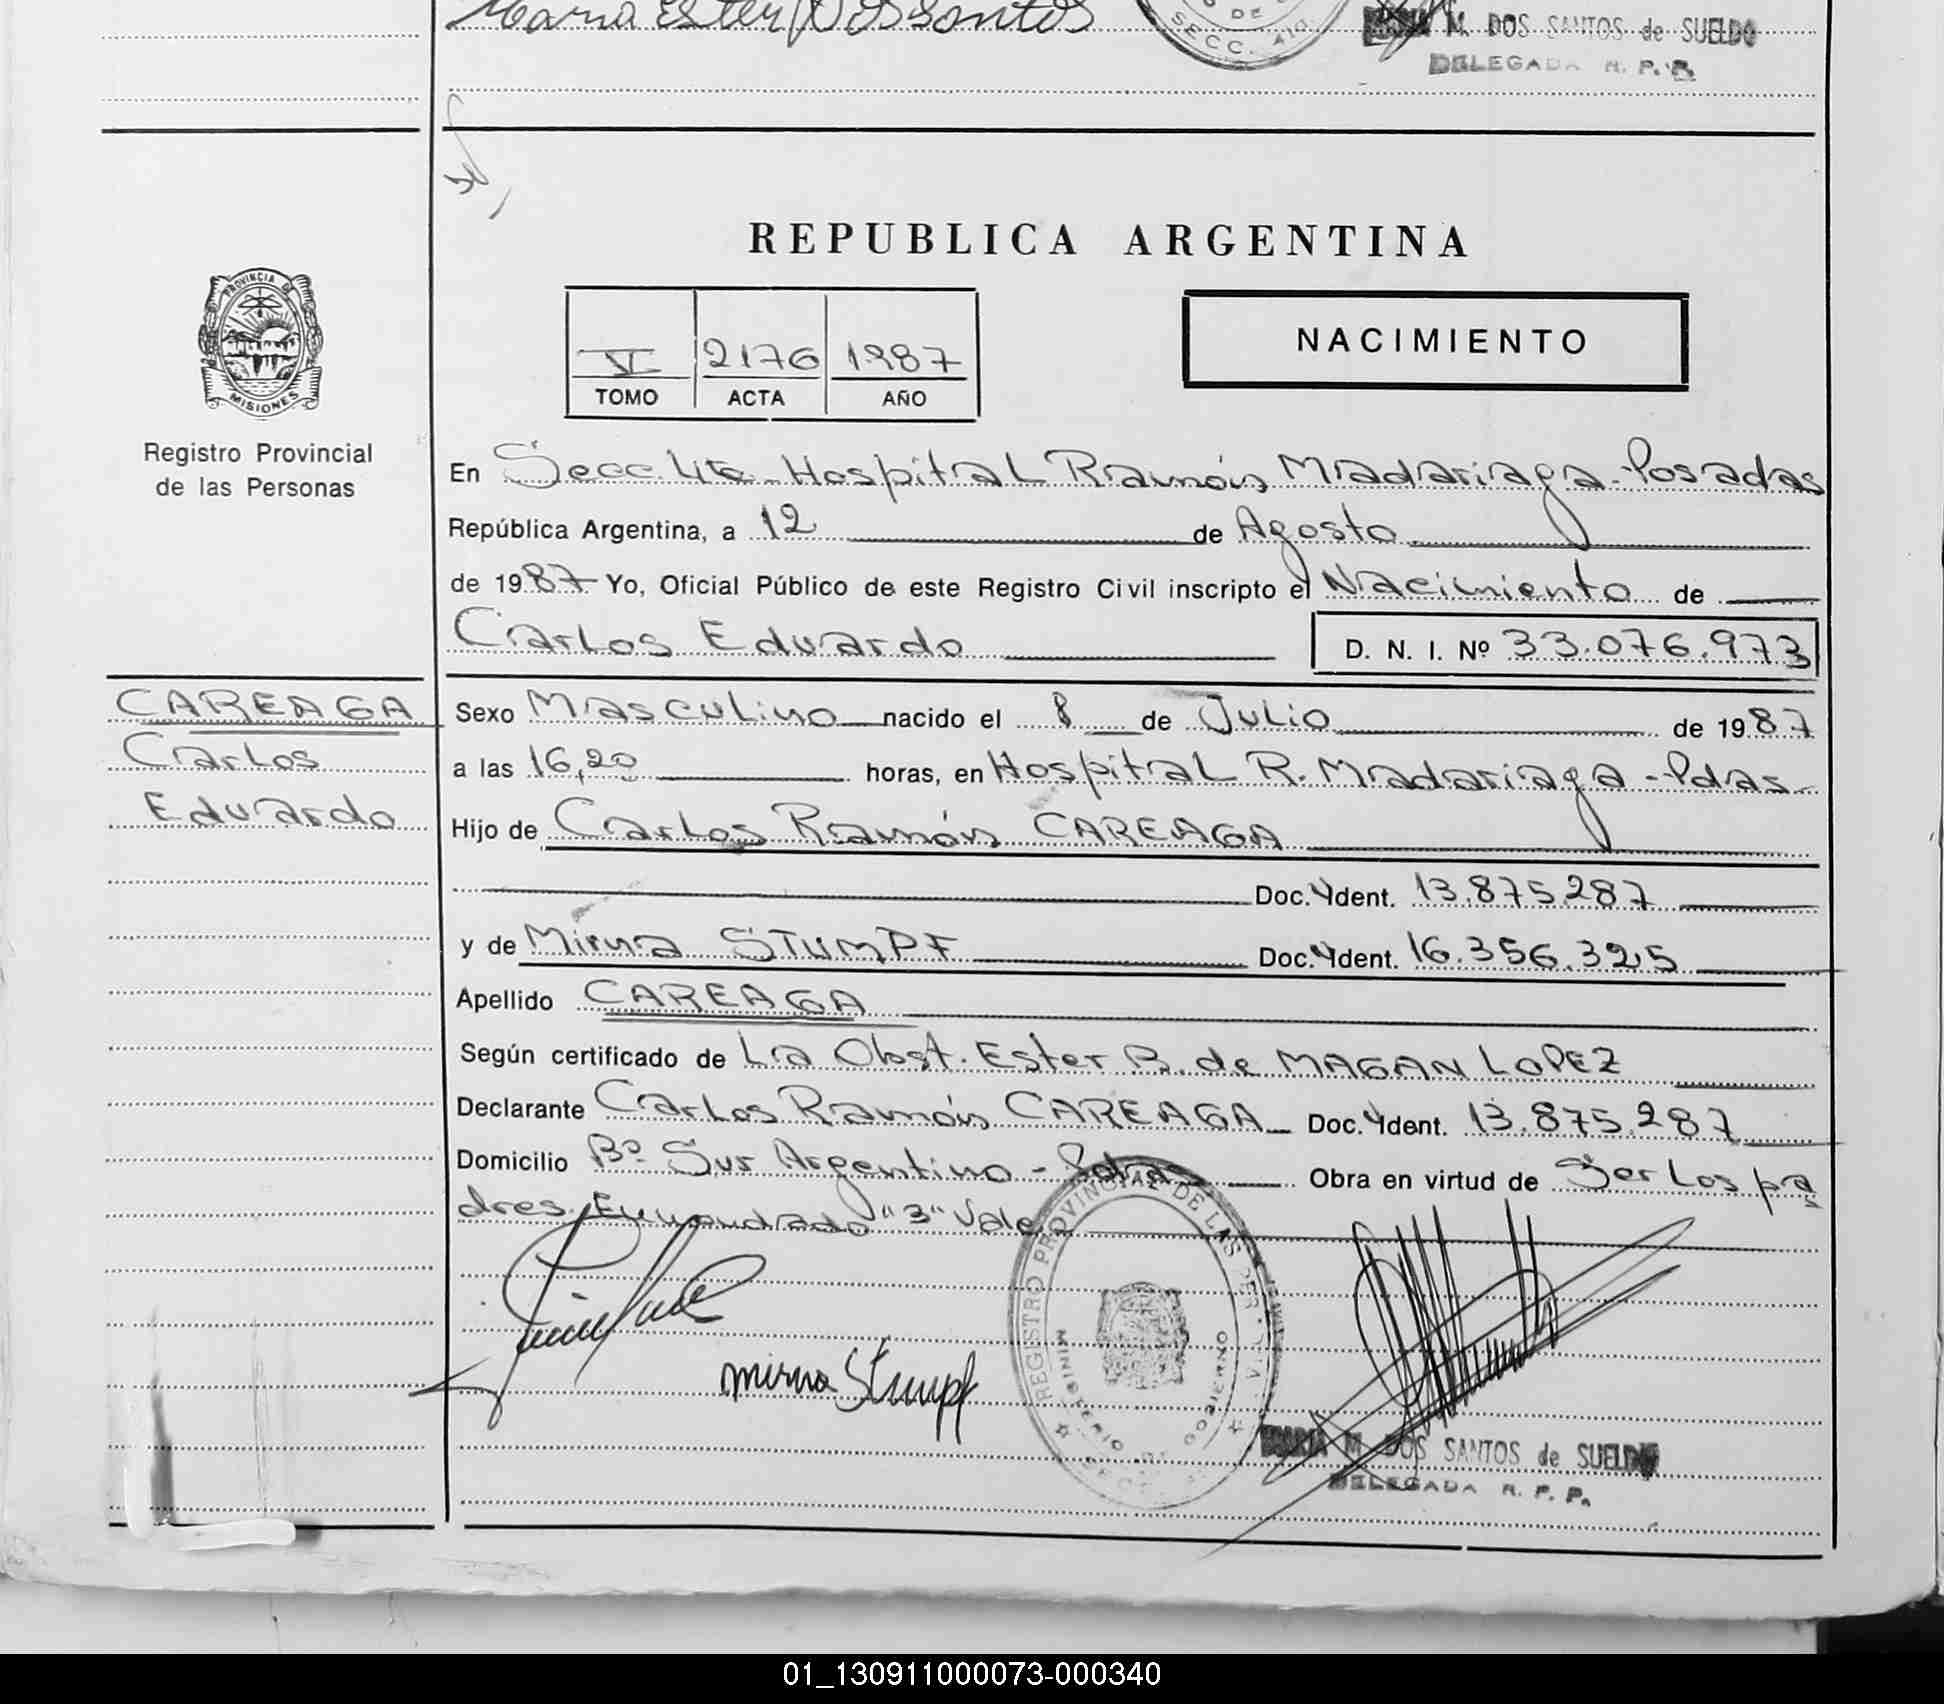 Maria Ester Dos Santos
SECC.
M. DOS SANTOS de SUELDO
DELEGADA R. P. P.
REPUBLICA ARGENTINA
PROVINCIA DE
MISIONES
Registro Provincial
de las Personas
VI 2176 1987
TOMO ACTA AÑO
NACIMIENTO
En Secc. 4ta. Hospital Ramón Madariaga - Posadas
República Argentina, a 12 de Agosto
de 1987 Yo, Oficial Público de este Registro Civil inscripto el Nacimiento de
Carlos Eduardo D. N. I. Nº 33.076.973
CAREAGA
Carlos
Eduardo
Sexo Masculino nacido el 8 de Julio de 1987
a las 16,20 horas, en Hospital R. Madariaga - Pdas
Hijo de Carlos Ramón CAREAGA
Doc. Ydent. 13.875.287
y de Mirna STUMPF Doc. Ydent. 16.356.325
Apellido CAREAGA
Según certificado de La Obst. Ester B. de MAGAN LOPEZ
Declarante Carlos Ramón CAREAGA Doc. Ydent. 13.875.287
Domicilio Bº Sur Argentino - Pdas Obra en virtud de Ser Los pa
dres. Enmendado "3" Vale
mirna Stumpf
REGISTRO PROVINCIAL DE LAS PER
MINISTERIO DE GOBIERNO
MARIA M. DOS SANTOS de SUELDO
DELEGADA R. P. P.
01_130911000073-000340